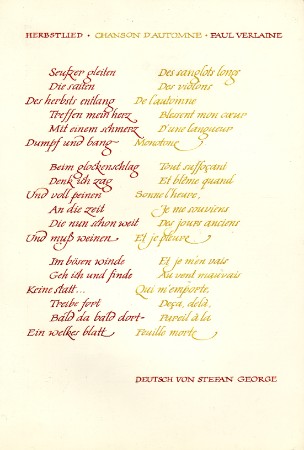 HERBSTLIED · CHANSON D'AUTOMNE · PAUL VERLAINE
Seufzer gleiten
Die saiten
Des herbsts entlang
Treffen mein herz
Mit einem schmerz
Dumpf und bang
Beim glockenschlag
Denk ich zag
Und voll peinen
An die zeit
Die nun schon weit
Und muß weinen
Im bösen winde
Geh ich und finde
Keine statt...
Treibe fort
Bald da bald dort-
Ein welkes blatt
Des sanglots longs
Des violons
De l'automne
Blessent mon cœur
D'une langueur
Monotone
Tout suffocant
Et blême quand
Sonne l'heure,
Je me souviens
Des jours anciens
Et je pleure
Et je m'en vais
Au vent mauvais
Qui m'emporte,
Deça, delà,
Pareil à la
Feuille morte
DEUTSCH VON STEFAN GEORGE